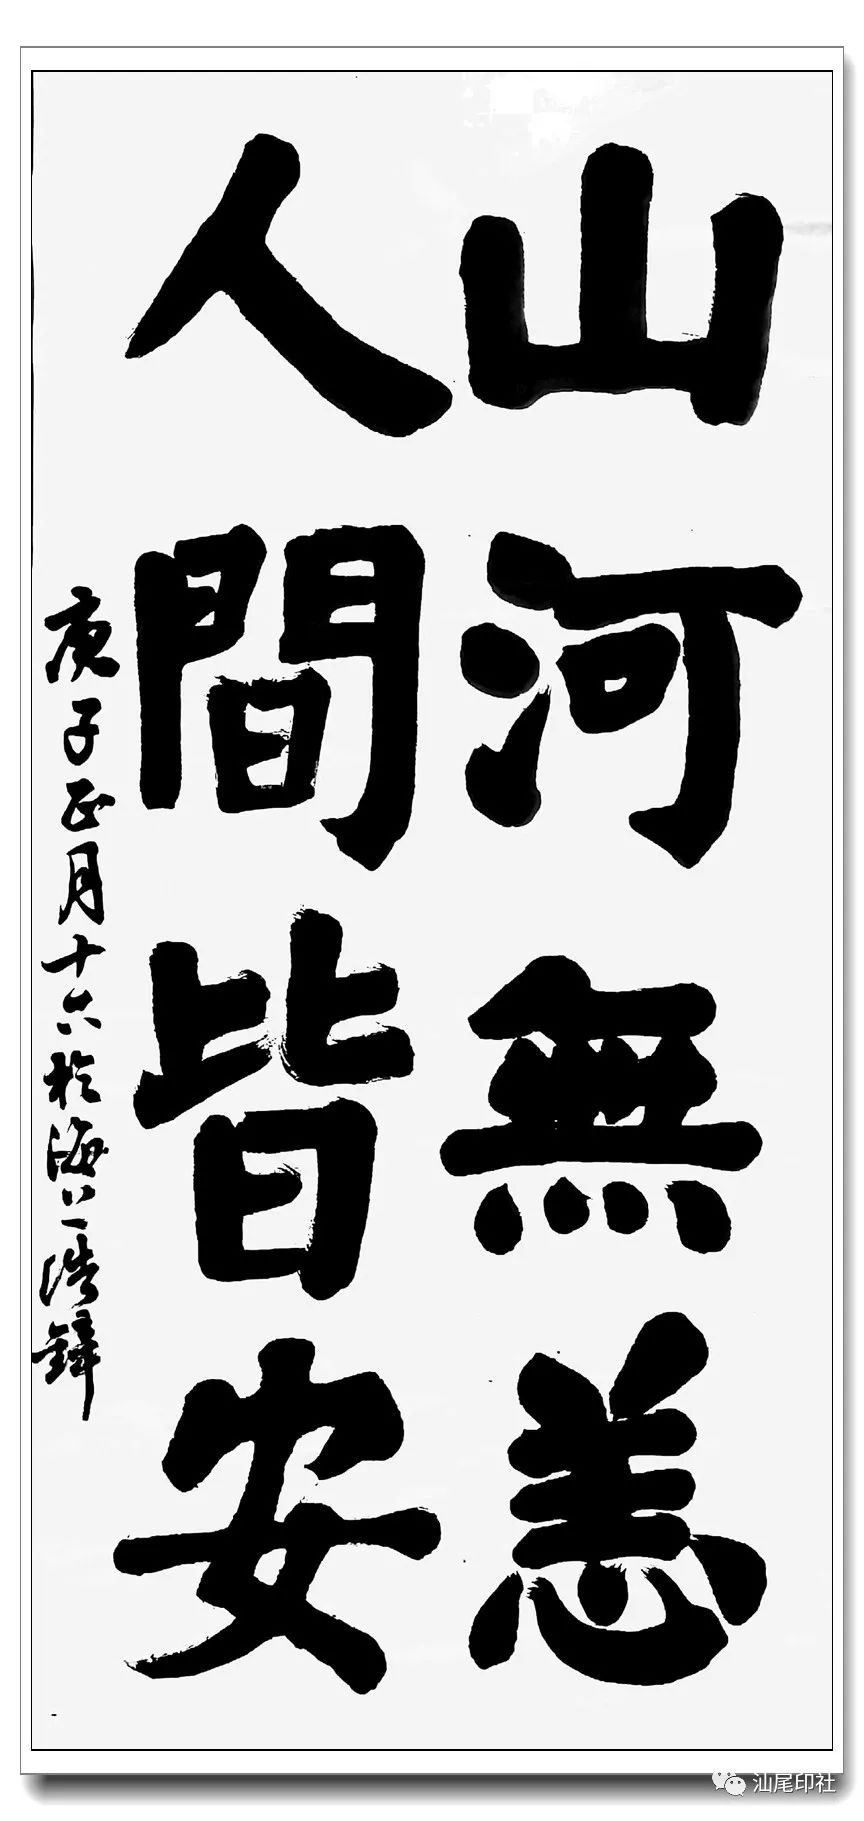 山河無恙
人間皆安
庚子正月十六於海上浩鋒
汕尾印社